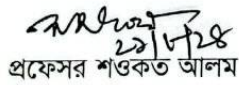 ২১/৮/২৪
প্রফেসর শওকত আলম